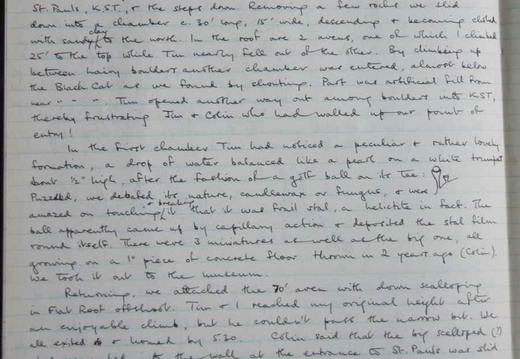 St. Pauls, K.S.T., & the steps down. Removing a few rocks we slid
down into a chamber c. 30' long, 15' wide, descending & becoming choked
with sandy clay to the north. In the roof are 2 avens, one of which I climbed
25' to the top while Tim nearly fell out of the other. By climbing up
between hairy boulders another chamber was entered, almost below
the Black Cat as we found by shouting. Part was artificial fill from
near " " " . Tim opened another way out among boulders into K.S.T,
thereby frustrating Jim & Colin who had walked up our point of
entry!
In the first chamber Tim had noticed a peculiar & rather lovely
formation, a drop of water balanced like a pearl on a white trumpet
bout ½" high, after the fashion of a golf ball on its tee:
Puzzled, we debated its nature, candlewax or fungus, & were
amazed on touching & breaking it that it was frail stal, a helictite in fact. The
ball apparently came up by capillary action & deposited the stal film
round itself. There were 3 miniatures as well as the big one, all
growing on a 1" piece of concrete floor thrown in 2 years ago (Colin).
We took it out to the museum.
Returning, we attacked the 70' aven with down scalloping
in Flat Roof offshoot. Tim & I reached my original height after
an enjoyable climb, but he couldn't pass the narrow bit. We
all exited & homed by 5.30. Colin said that the big scalloped (!)
the wall at the entrance to St. Pauls was slid